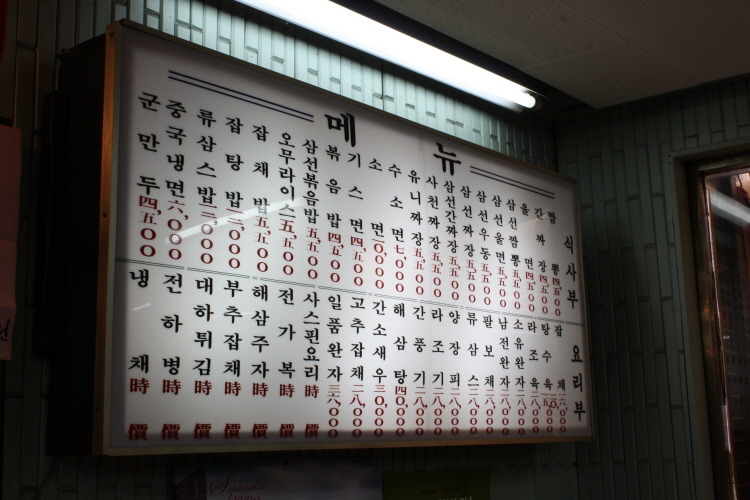 메뉴
식사부
짬뽕 四,五〇〇
간짜장
울면
삼선짬뽕 五,五〇〇
삼선울면 五,五〇〇
삼선우동 五,五〇〇
삼선간짜장 五,五〇〇
삼선짜장
사천짜장 五,五〇〇
유니짜장 五,五〇〇
수소면
소면
기스면
볶음밥 四,五〇〇
삼선볶음밥 五,五〇〇
오무라이스 五,五〇〇
잡채밥 五,五〇〇
잡탕밥
류삼스밥
중국냉면 六,〇〇〇
군만두 四,五〇〇
요리부
잡채 一六,〇〇〇
탕수육
라조육 一八,〇〇〇
소유완자
남전완자
팔보채
류삼스
양장피
라조기
간풍기
해삼탕 四〇,〇〇〇
간소새우 三〇,〇〇〇
고추잡채 二八,〇〇〇
일품완자 三六,〇〇〇
사스핀요리 時價
전가복 時價
해삼주자 時價
부추잡채 時價
대하튀김 時價
전하병 時價
냉채 時價
September